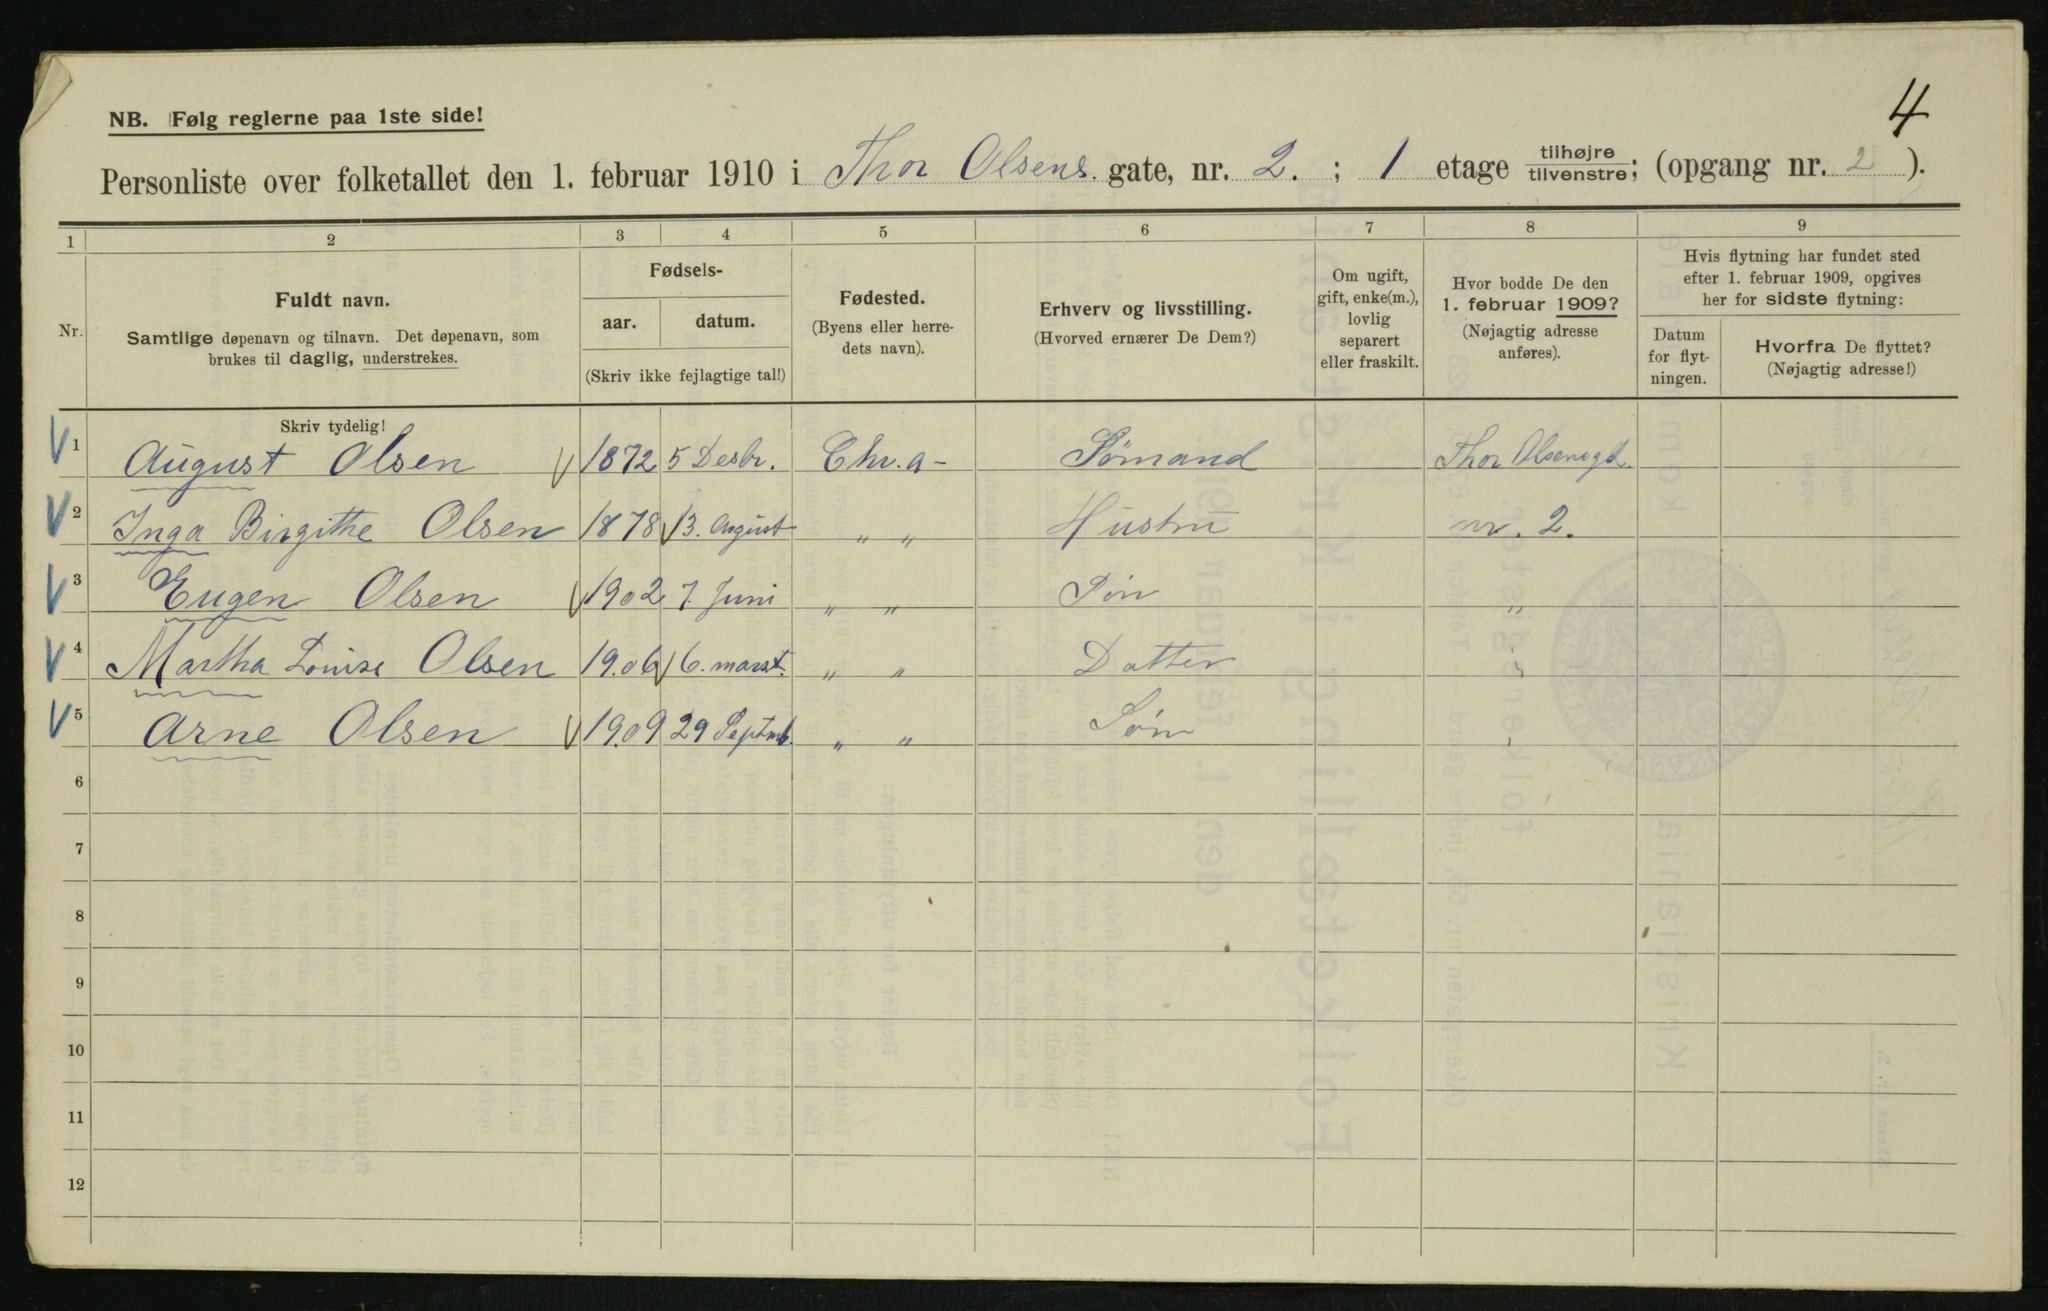 4
NB. Følg reglerne paa 1ste side!
Personliste over folketallet den 1. februar 1910 i Thor Olsens gate, nr. 2. ; 1 etage tilhøjre/tilvenstre; (opgang nr. 2 ).
1 2 3 4 5 6 7 8 9
Nr.
Fuldt navn.
Samtlige døpenavn og tilnavn. Det døpenavn, som
brukes til daglig, understrekes.
Fødsels-
aar. datum.
(Skriv ikke fejlagtige tal!)
Fødested.
(Byens eller herre-
dets navn).
Erhverv og livsstilling.
(Hvorved ernærer De Dem?)
Om ugift,
gift, enke(m.),
lovlig
separert
eller fraskilt.
Hvor bodde De den
1. februar 1909?
(Nøjagtig adresse
anføres).
Hvis flytning har fundet sted
efter 1. februar 1909, opgives
her for sidste flytning:
Datum
for flyt-
ningen.
Hvorfra De flyttet?
(Nøjagtig adresse!)
Skriv tydelig!
1 August Olsen 1872 5 Desbr. Chr.a- Sømand Thor Olsensgd.
2 Inga Birgithe Olsen 1878 13. August " " Hustru nr. 2.
3 Eugen Olsen 1902 7. Juni " " Søn "
4 Martha Louise Olsen 1906 6. marst. " " Datter "
5 Arne Olsen 1909 29 Septmb. " " Søn "
6
7
8
9
10
11
12